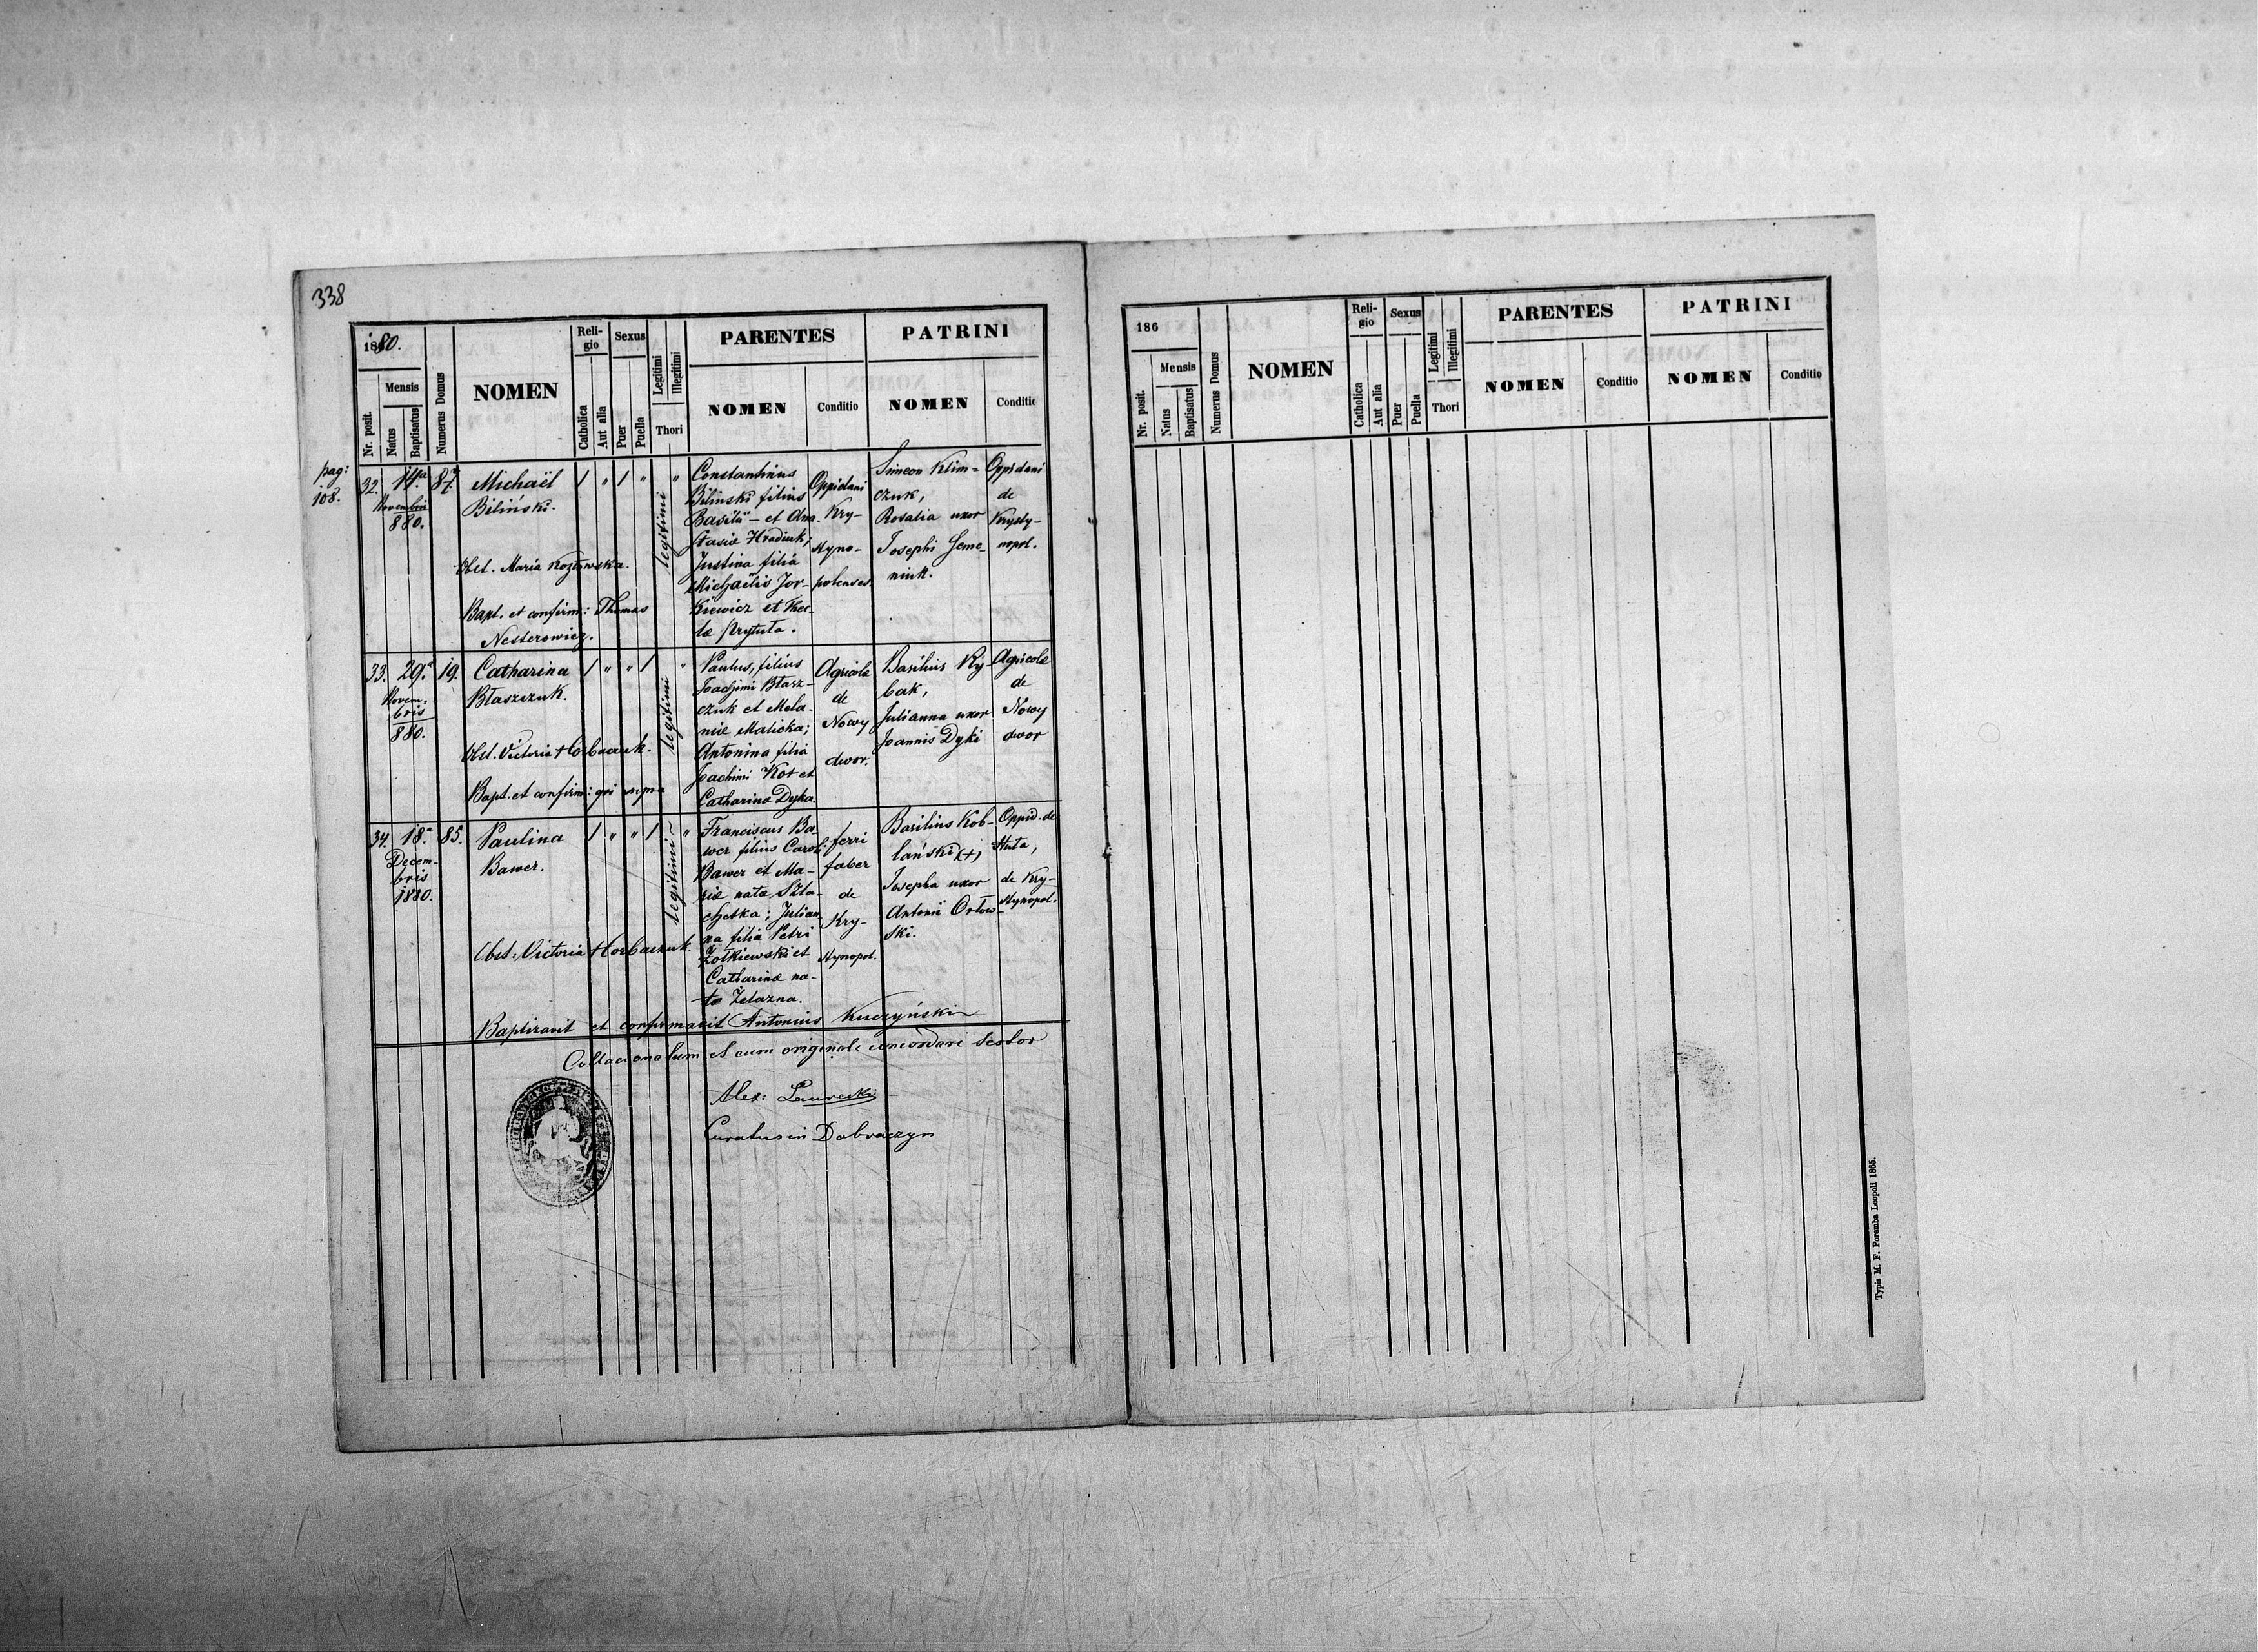 338
1880.
Mensis
Nr. posit.
Natus
Baptisatus
Numerus Domus
NOMEN
Reli-
gio
Catholica
Aut alia
Sexus
Puer
Puella
Legitimi
Illegitimi
Thori
PARENTES
NOMEN
Conditio
PATRINI
NOMEN
Conditio
pag:
108.
32.
14a
Novembris
880.
87.
Michaël
Biliński.
Obst. Maria Kozłowska.
Bapt. et confirm: Thomas
Nesterowicz.
1 " 1 " "
legitimi
Constantinus
Biliński filius
Basilii – et Ana-
stasiæ Hradiuk,
Justina filia
Michaëlis Jor-
kiewicz et Thec-
læ Prytuła.
Oppidani
Kry-
styno-
polenses
Simeon Klim-
czuk,
Rosalia uxor
Josephi Seme-
niuk.
Oppidani
de
Krysty-
nopol.
33.
29.a
Novem-
bris
880.
19.
Catharina
Błaszczuk.
Obst. Victoria Horbaczuk.
Bapt. et confirm: qui supra
1 " " 1 "
legitimi
Paulus, filius
Joachimi Błasz-
czuk et Mela-
niæ Malicka;
Antonina filia
Joachimi Kot et
Catharinæ Dyka.
Agricolæ
de
Nowy
dwor.
Basilius Ry-
bak,
Julianna uxor
Joannis Dyki
Agricolæ
de
Nowy
dwor
34.
18.a
Decem-
bris
1880.
85.
Paulina
Bawer.
Obst: Victoria Horbaczuk.
1 " " 1 "
legitimi
Franciscus Ba-
wer filius Caroli
Bawer et Ma-
riæ natæ Szla-
chetka; Julian-
na filia Petri
Żołkiewski et
Catharinæ na-
tæ Żelazna.
ferri
faber
de
Kry-
stynopol.
Basilius Kob-
lański (+)
Josepha uxor
Antonii Orłow-
ski.
Oppid. de
Huta,
de Kry-
stynopol.
Baptizavit et confirmavit Antonius Kuczyński
Collacionatum et cum originale concordare testor
Alex: Lawrecki
Curatus in Dobraczyn
186
Mensis
Nr. posit.
Natus
Baptisatus
Numerus Domus
NOMEN
Reli-
gio
Catholica
Aut alia
Sexus
Puer
Puella
Legitimi
Illegitimi
Thori
PARENTES
NOMEN
Conditio
PATRINI
NOMEN
Conditio
Typis M. F. Poremba Leopoli 1865.